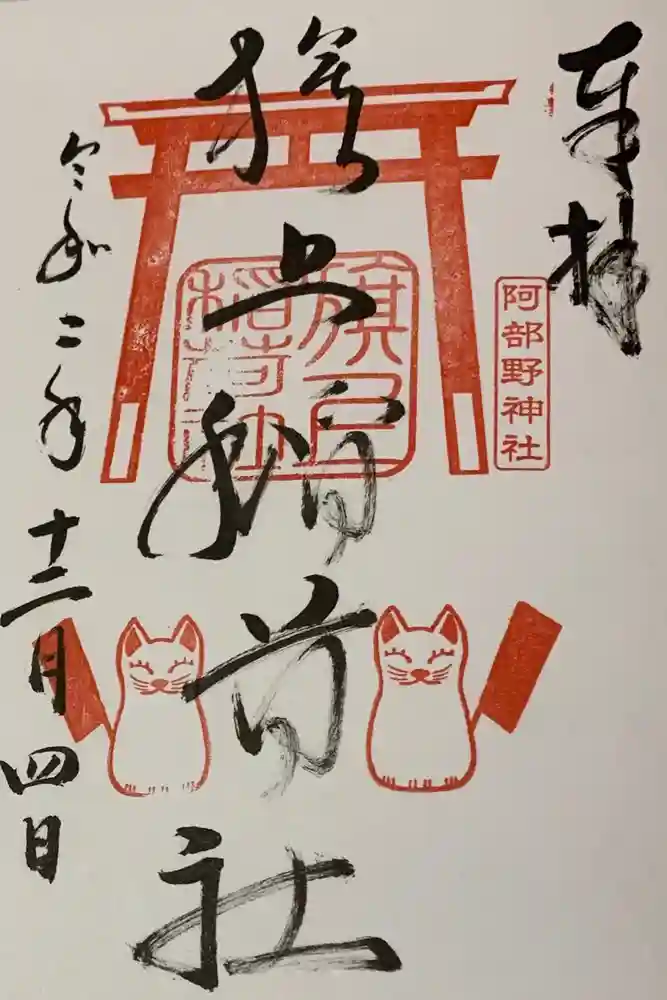 奉拝
阿部野神社
旗上稲荷社
旗上
稲荷社
令和二年
十二月四日